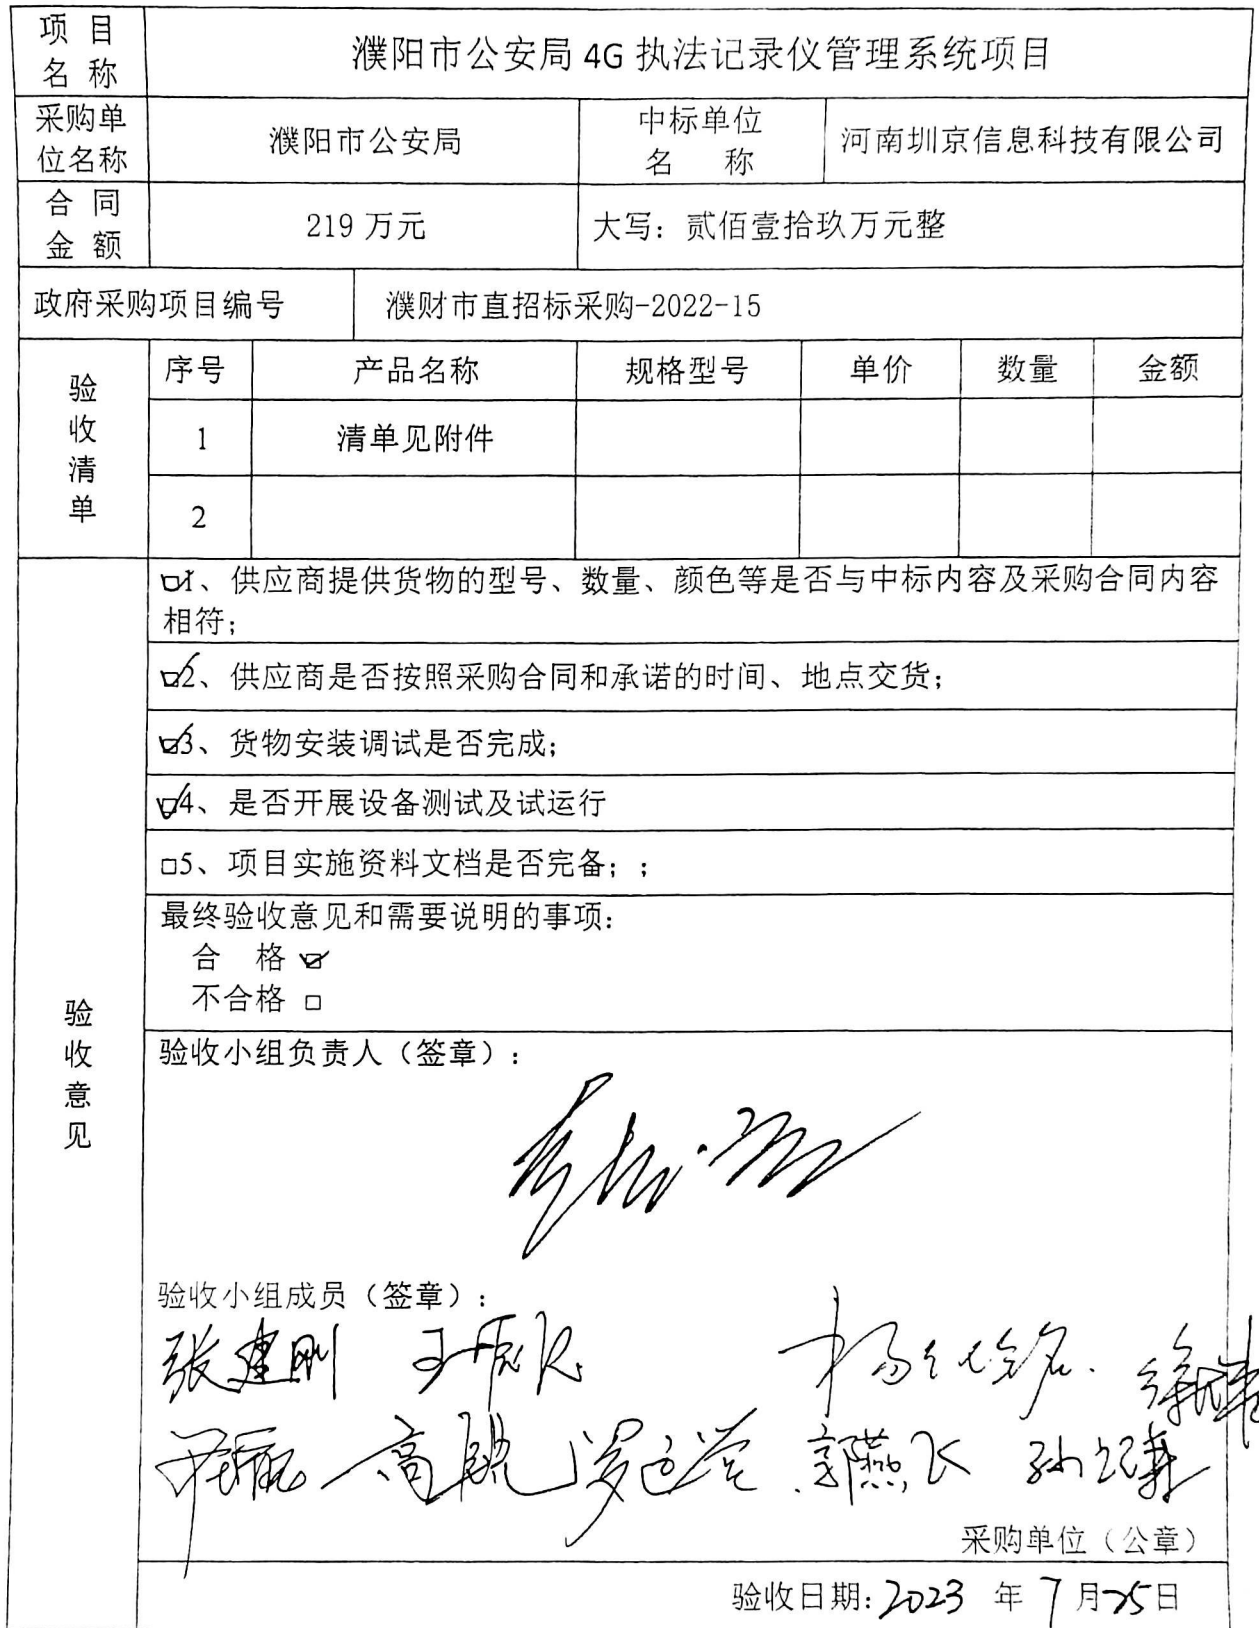 项 目
名 称
濮阳市公安局 4G 执法记录仪管理系统项目
采购单
位名称
濮阳市公安局
中标单位
名 称
河南圳京信息科技有限公司
合 同
金 额
219 万元
大写：贰佰壹拾玖万元整
政府采购项目编号
濮财市直招标采购-2022-15
验
收
清
单
序号 产品名称 规格型号 单价 数量 金额
1 清单见附件
2
验
收
意
见
☑1、供应商提供货物的型号、数量、颜色等是否与中标内容及采购合同内容
相符；
☑2、供应商是否按照采购合同和承诺的时间、地点交货；
☑3、货物安装调试是否完成；
☑4、是否开展设备测试及试运行
□5、项目实施资料文档是否完备；；
最终验收意见和需要说明的事项：
合 格 ☑
不合格 □
验收小组负责人（签章）：
验收小组成员（签章）：
张建刚
郭燕飞
采购单位（公章）
验收日期：2023 年 7 月25日